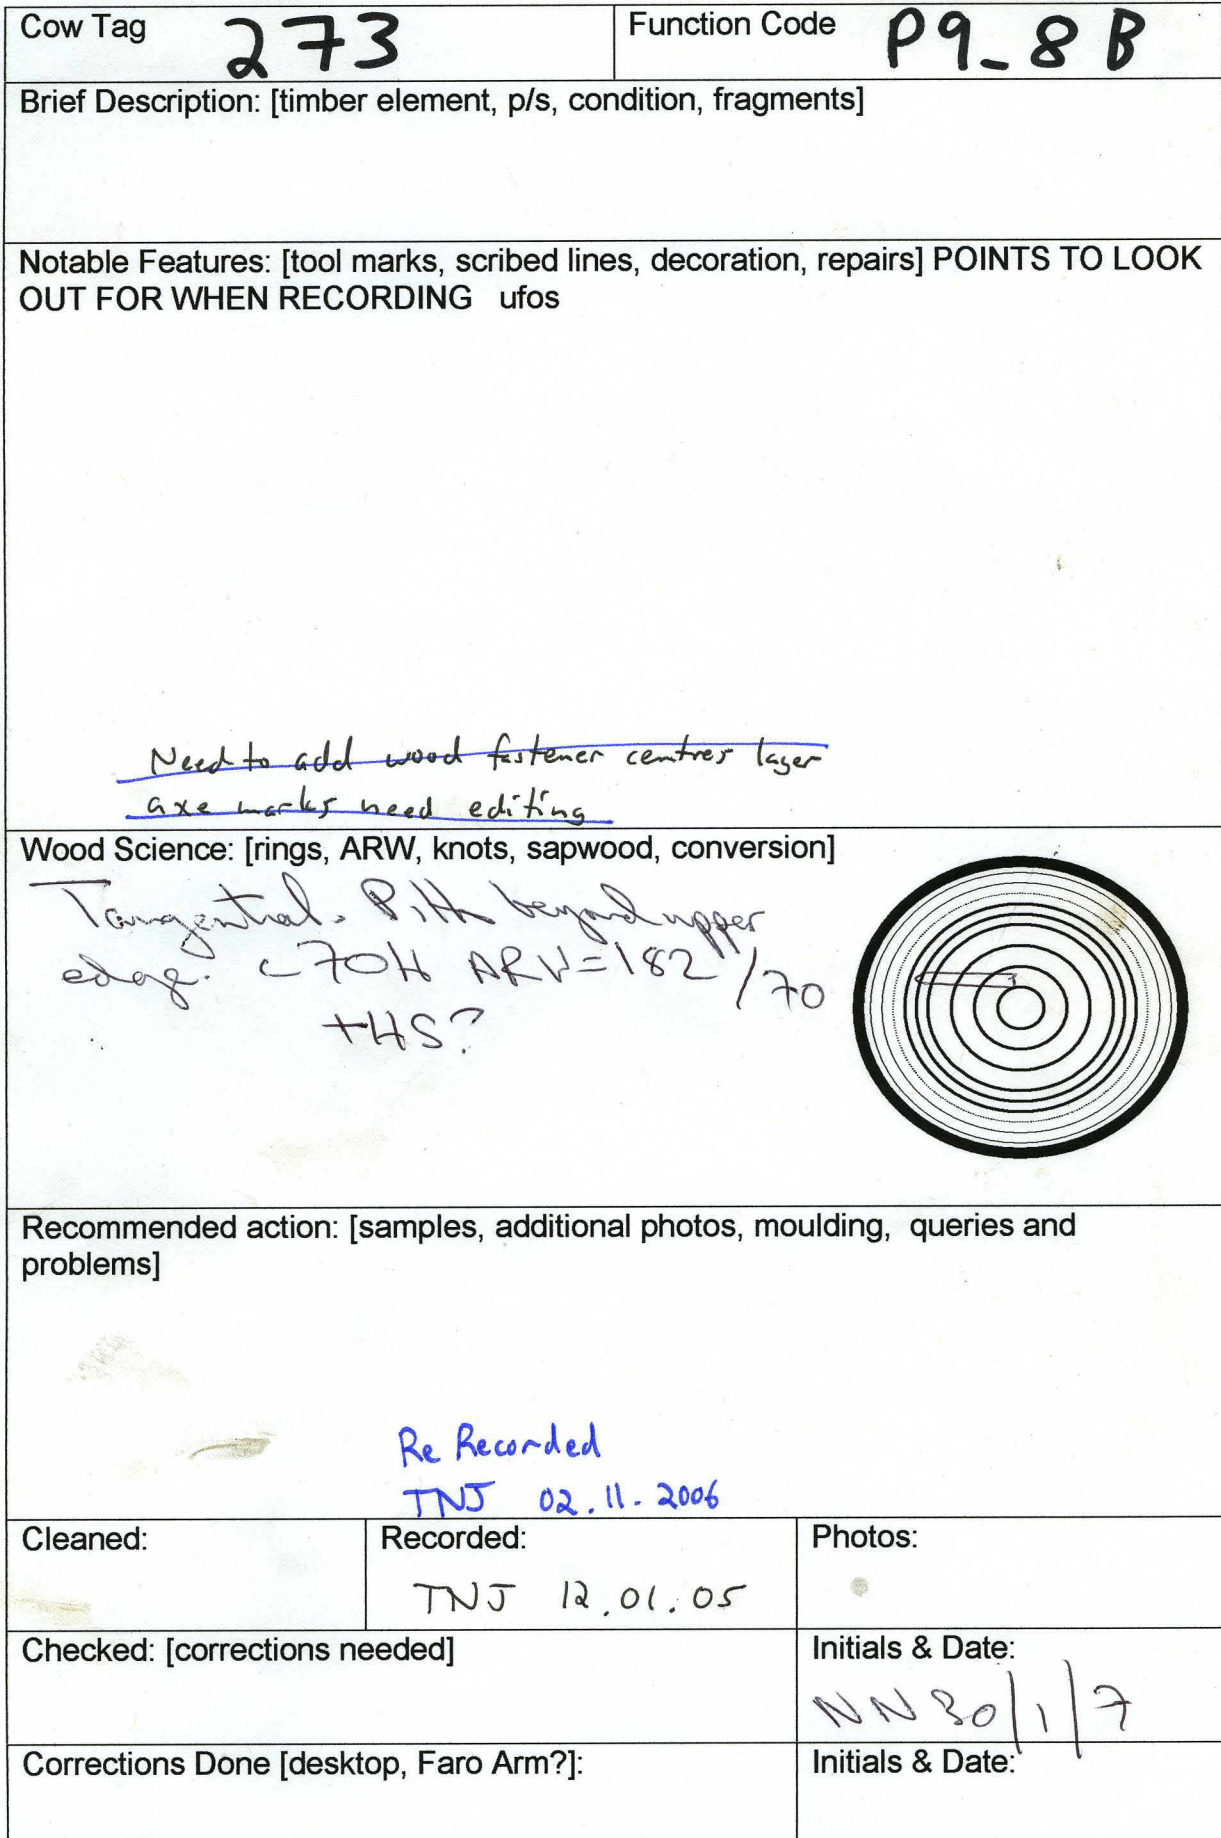 Cow Tag 273 Function Code P9_8 B
Brief Description: [timber element, p/s, condition, fragments]
Notable Features: [tool marks, scribed lines, decoration, repairs] POINTS TO LOOK
OUT FOR WHEN RECORDING ufos
Need to add wood fastener centres layer
axe marks need editing
Wood Science: [rings, ARW, knots, sapwood, conversion]
Tangential. Pith beyond upper
edge. c70H ARW=182/70
+HS?
Recommended action: [samples, additional photos, moulding, queries and
problems]
Re Recorded
TNJ 02.11.2006
Cleaned: Recorded: Photos:
TNJ 12.01.05
Checked: [corrections needed] Initials & Date:
NN 30/1/7
Corrections Done [desktop, Faro Arm?]: Initials & Date: